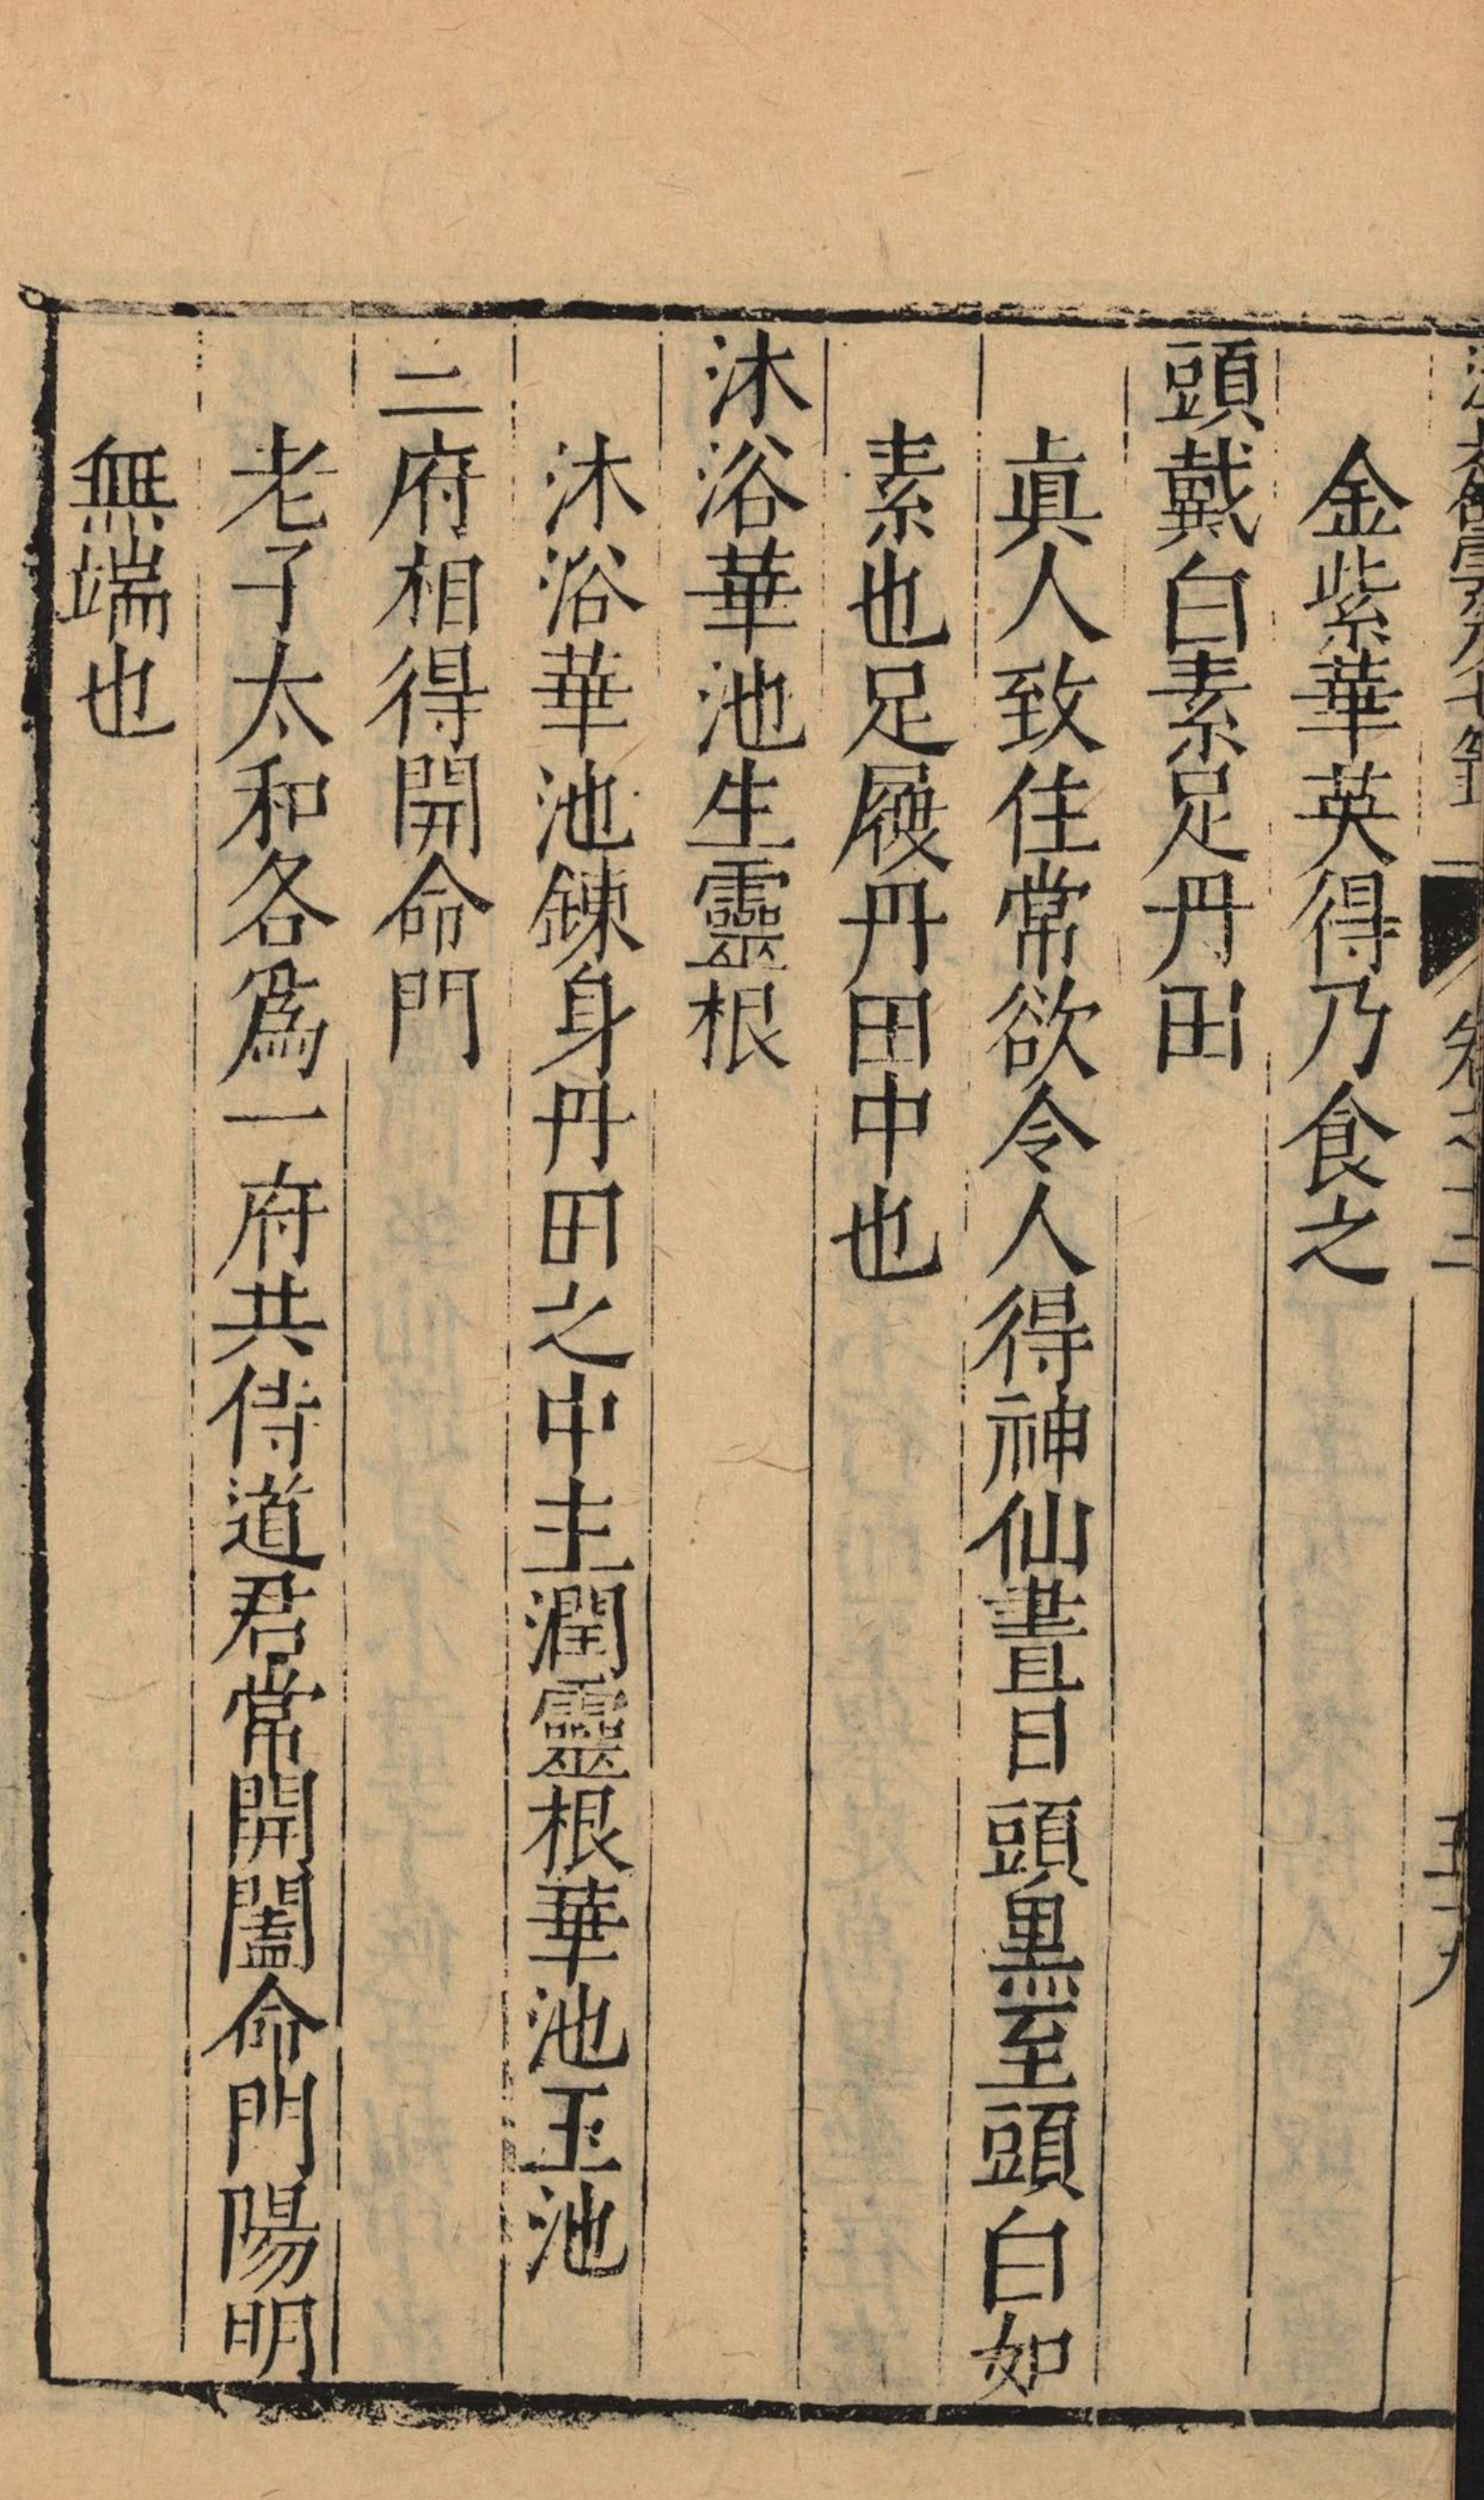 金紫華英得乃食之
頭戴白素足丹田
眞人致住常欲令人得神仙晝日頭黑至頭白如
素也足履丹田中也
沐浴華池生靈根
沐浴華池鍊身丹田之中主潤靈根華池玉池
二府相得開命門
老子太和各爲一府共侍道君常開闔命門陽明
無端也